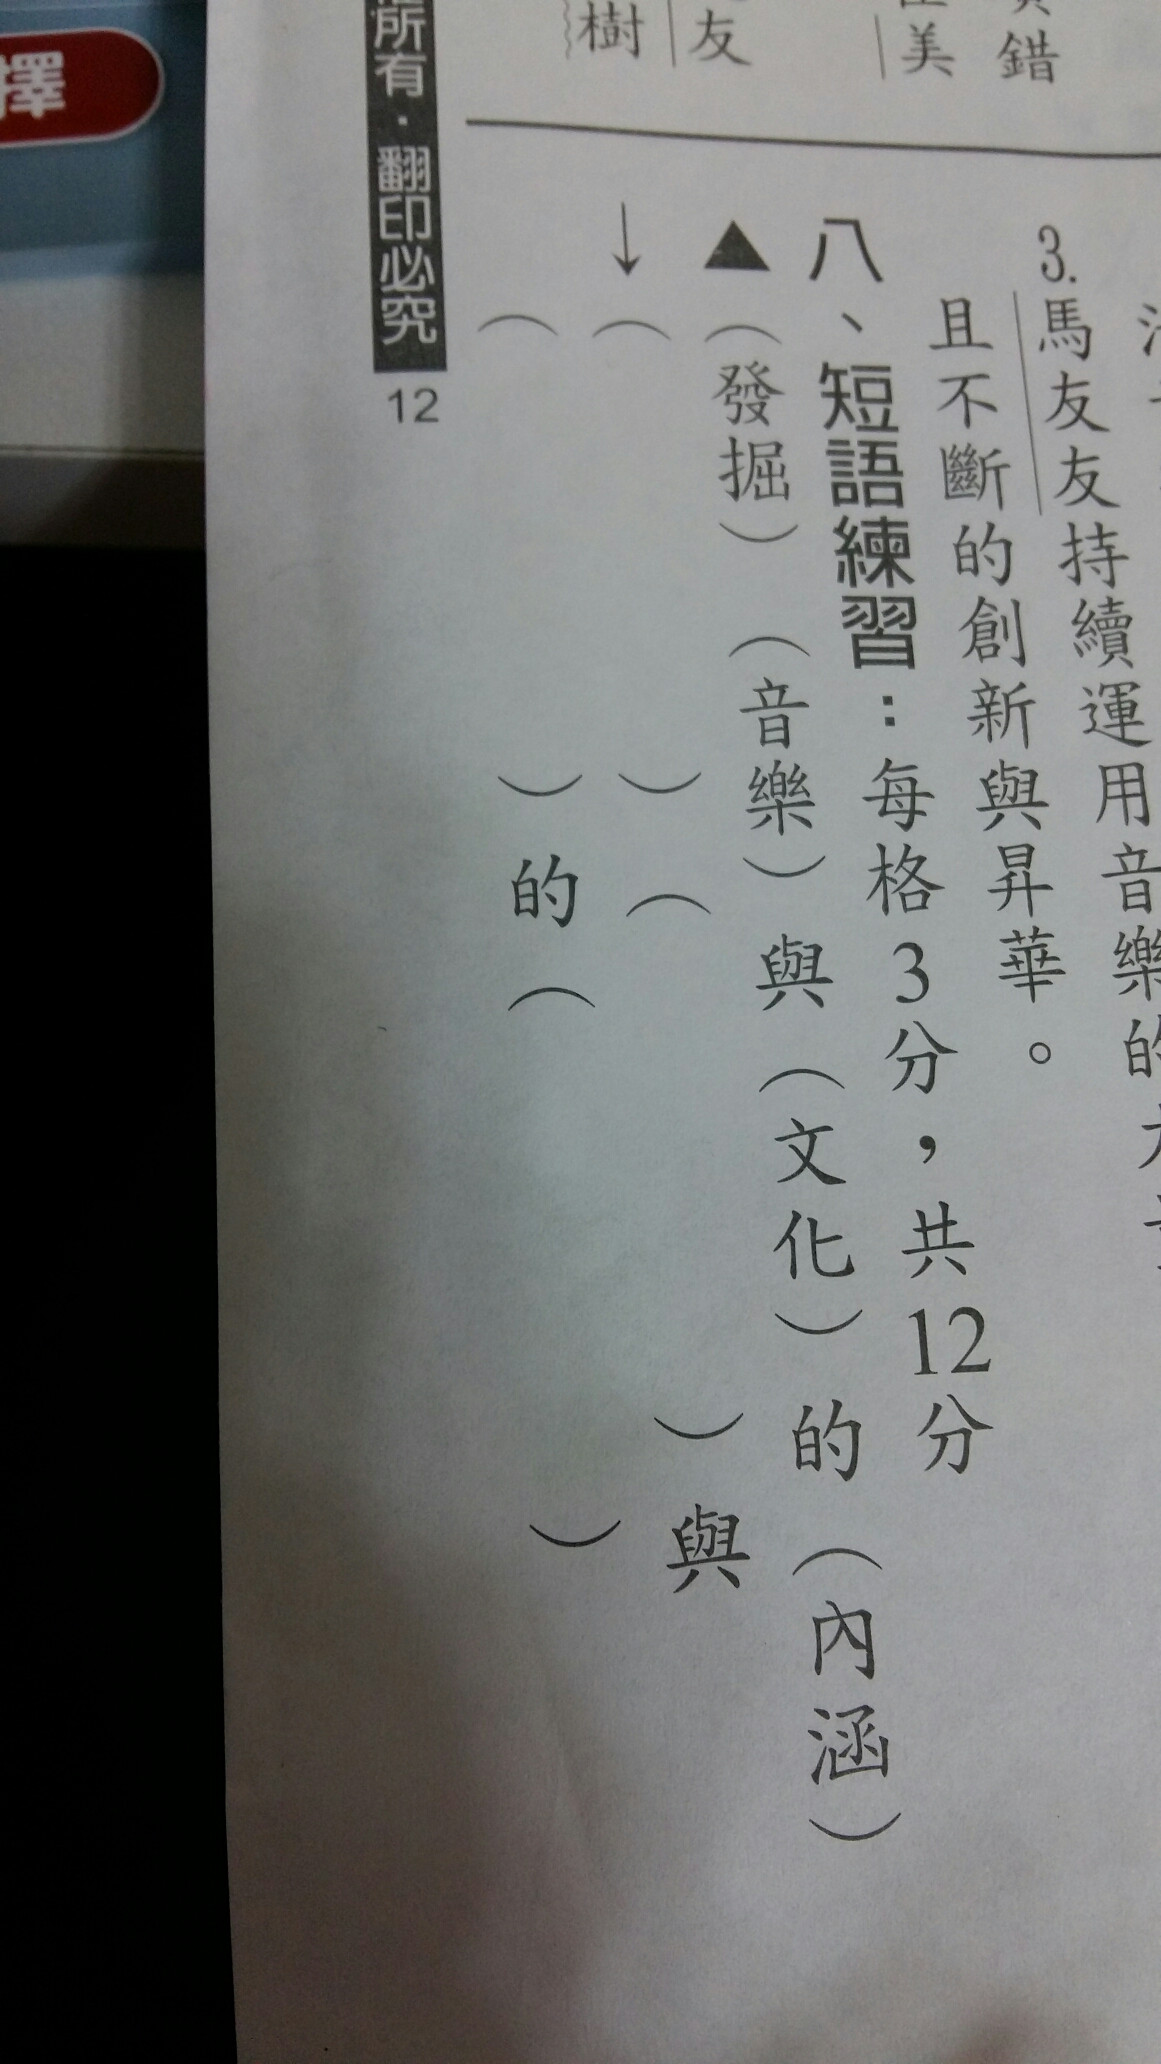 錯
美
友
樹
3.馬友友持續運用音樂的
且不斷的創新與昇華。
八、短語練習：每格3分，共12分
▲（發掘）（音樂）與（文化）的（內涵）
↓（　　　）（　　　）與
（　　　）的（　　　）
所有．翻印必究
12
擇